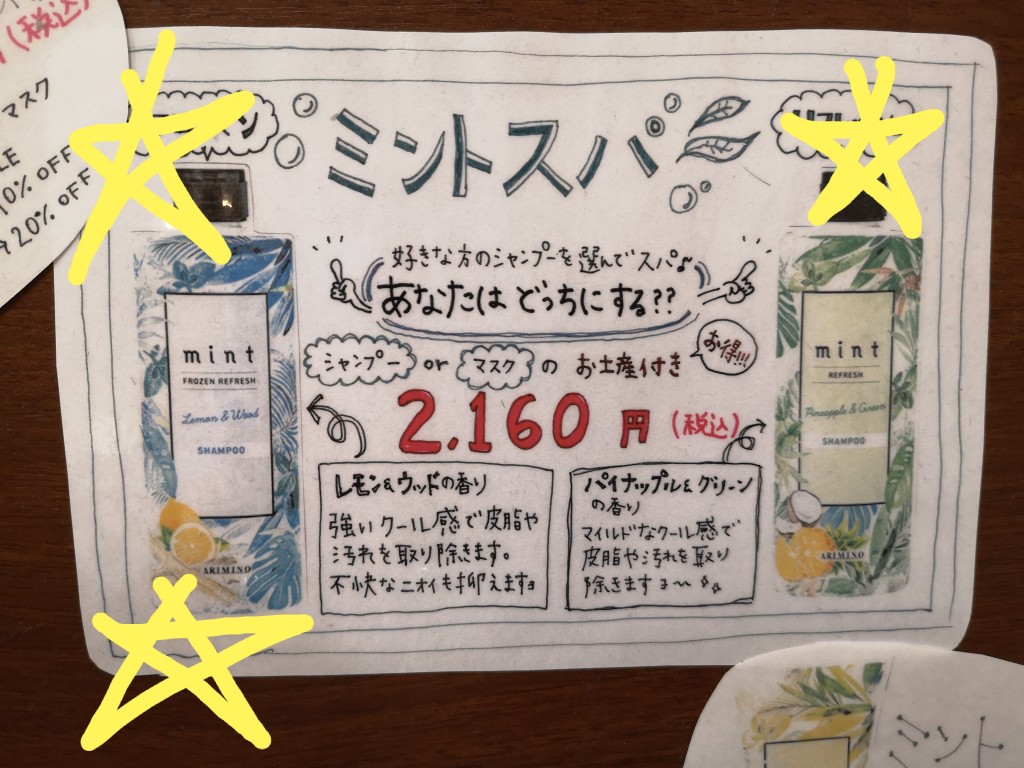 (税込)
マスク
10% OFF
20% OFF
ミントスパ
好きな方のシャンプーを選んでスパ♪
あなたは どっちにする??
シャンプー or マスク の お土産付き
お得!!!
2.160 円 (税込)
レモン&ウッドの香り
強いクール感で皮脂や
汚れを取り除きます。
不快なニオイも抑えますョ
パイナップル&グリーン
の香り
マイルドなクール感で
皮脂や汚れを取り
除きますョ〜
mint
FROZEN REFRESH
Lemon & Wood
SHAMPOO
ARIMINO
mint
REFRESH
Pineapple & Green
SHAMPOO
ARIMINO
ミント